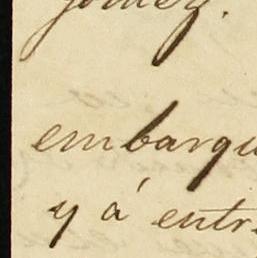 embarqu
y á entr